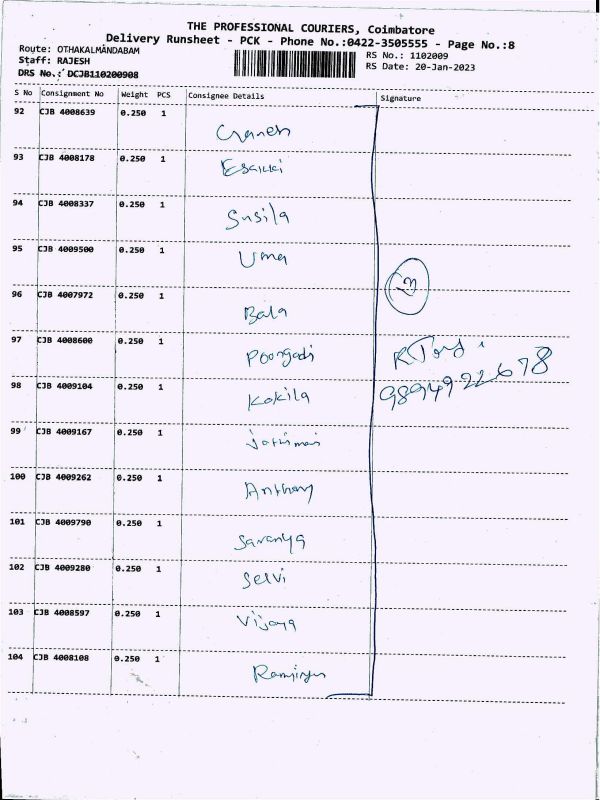 THE PROFESSIONAL COURIERS, Coimbatore
Delivery Runsheet - PCK - Phone No.:0422-3505555 - Page No.:8
Route: OTHAKALMANDABAM
Staff: RAJESH
DRS No.: DCJB110200908
RS No.: 1102009
RS Date: 20-Jan-2023
S No Consignment No Weight PCS Consignee Details Signature
92 CJB 4008639 0.250 1
93 CJB 4008178 0.250 1 Esakki
94 CJB 4008337 0.250 1 Susila
95 CJB 4009500 0.250 1 Uma
96 CJB 4007972 0.250 1 Bala
97 CJB 4008600 0.250 1 Poongodi
98 CJB 4009104 0.250 1 Kokila 9894922678
99 CJB 4009167 0.250 1
100 CJB 4009262 0.250 1 Anthony
101 CJB 4009790 0.250 1 Saranya
102 CJB 4009280 0.250 1 Selvi
103 CJB 4008597 0.250 1 Vijaya
104 CJB 4008108 0.250 1